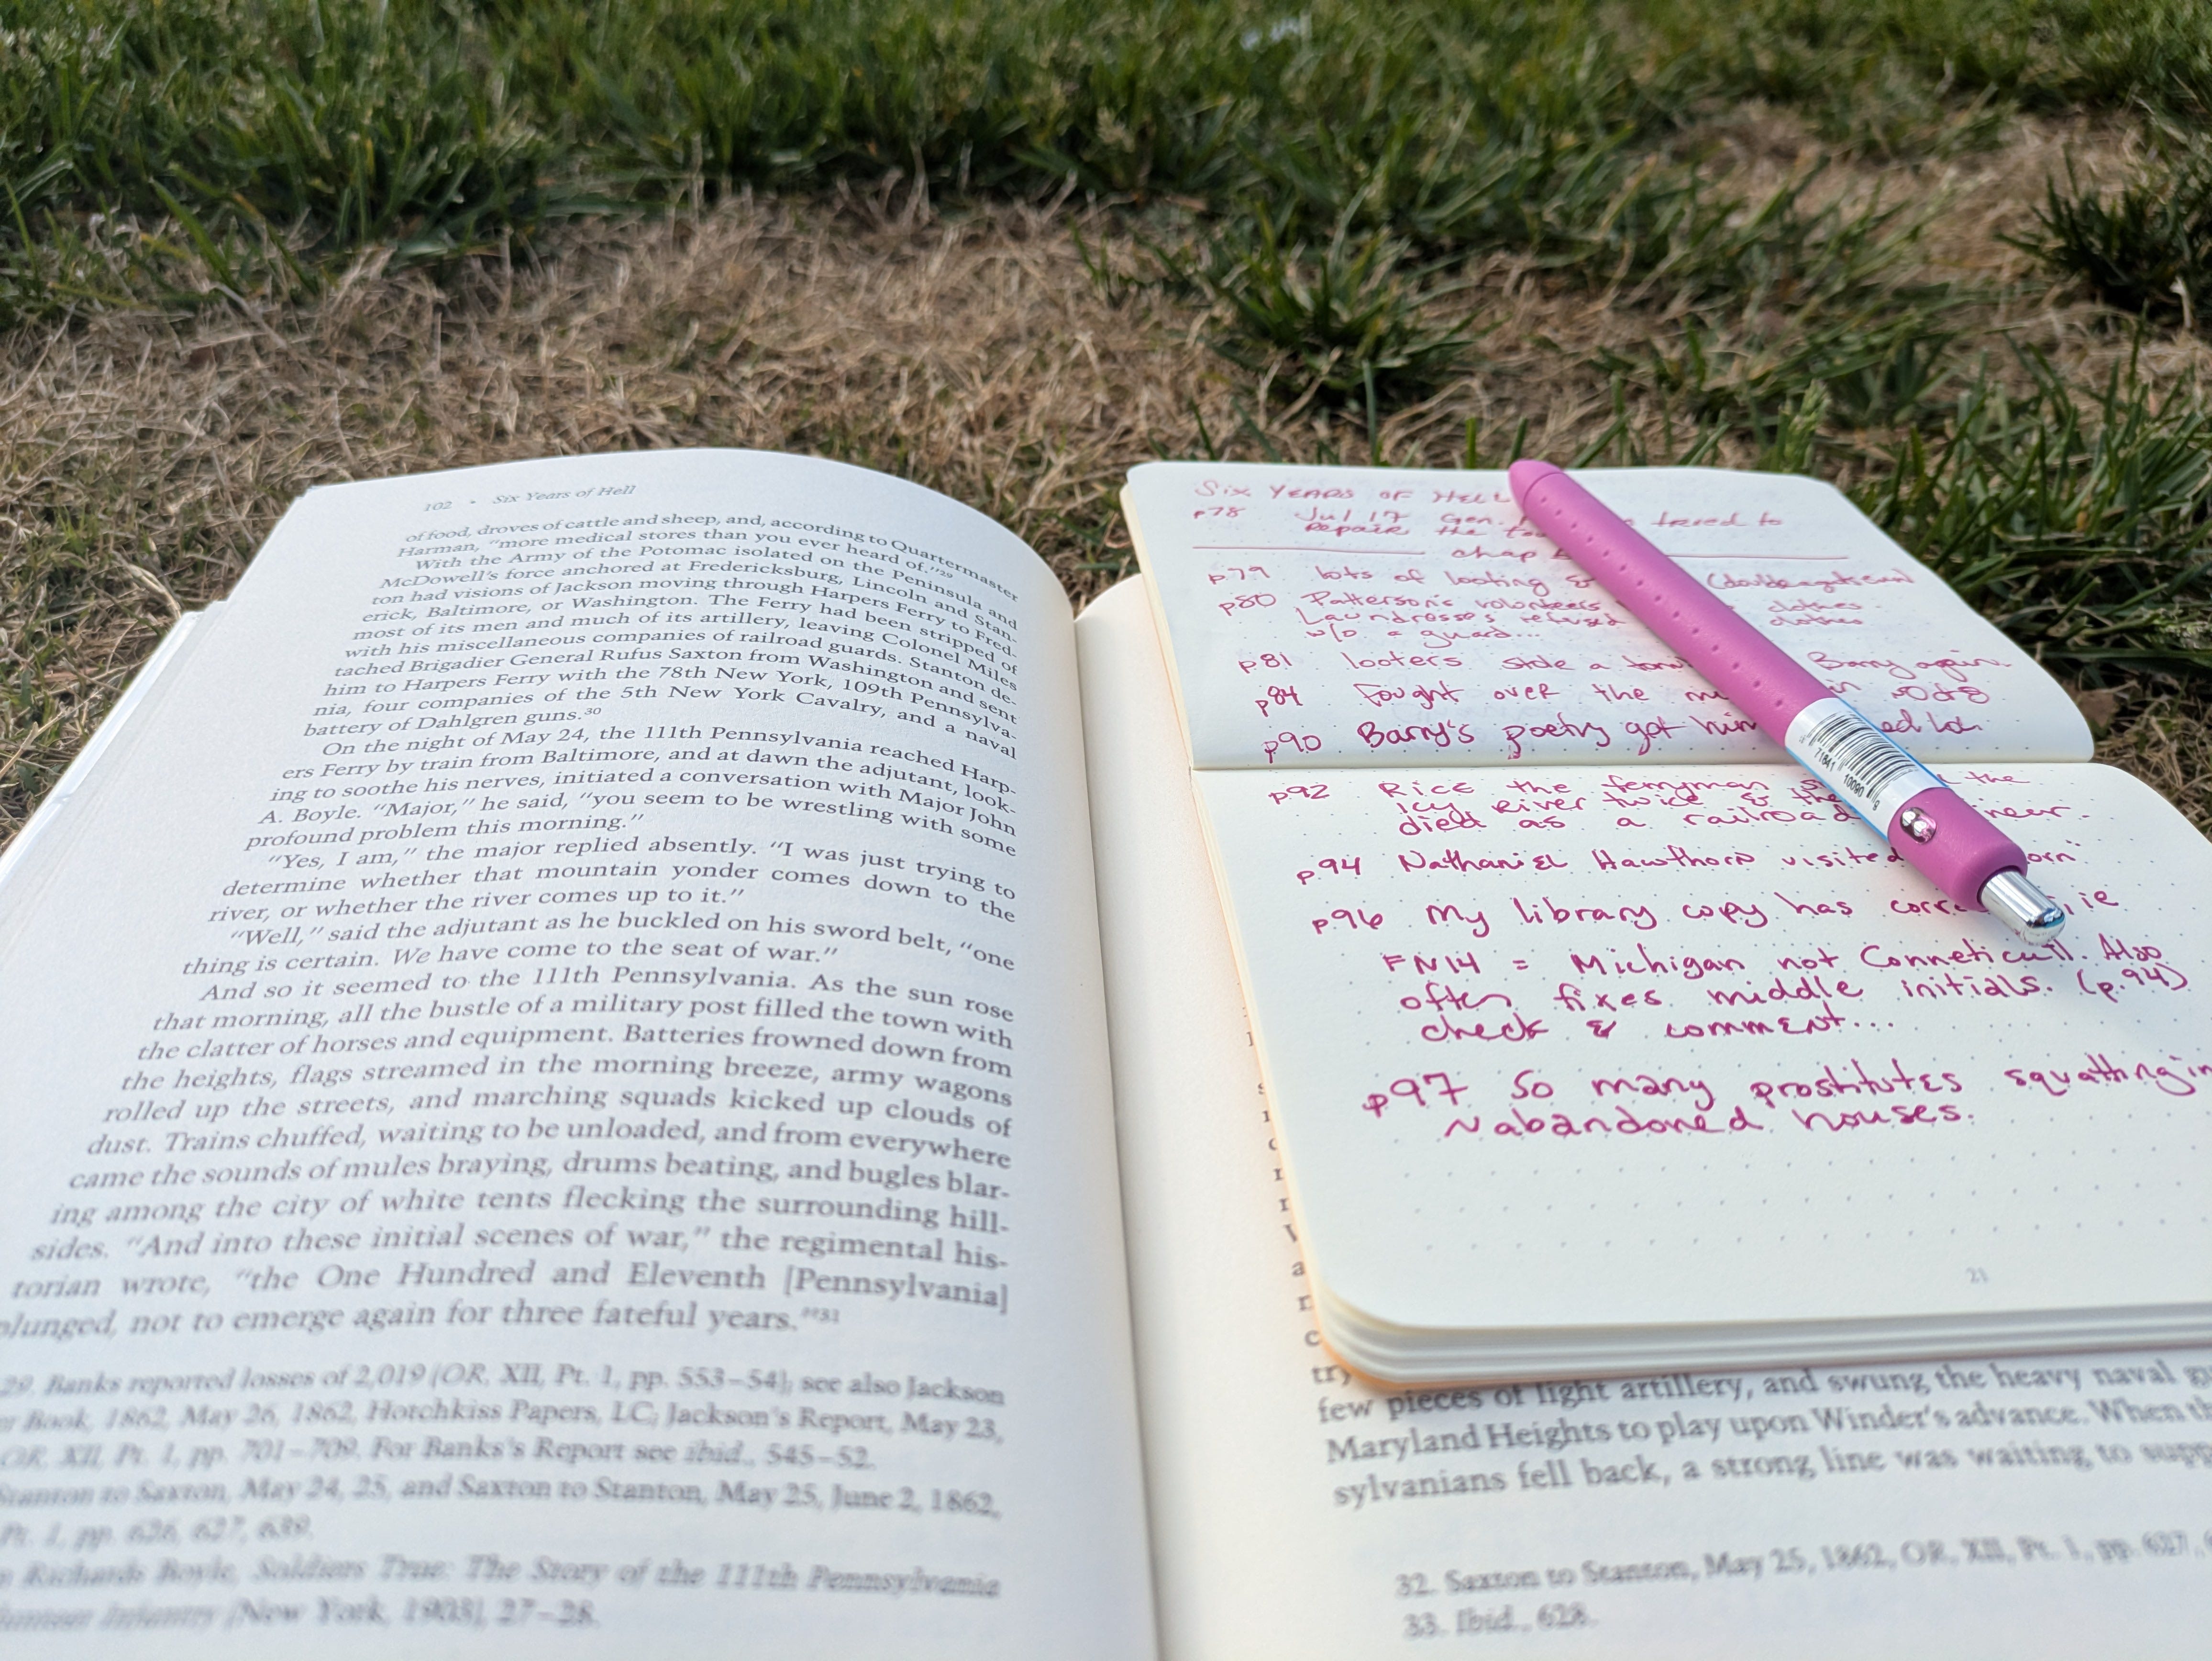 102 • Six Years of Hell
of food, droves of cattle and sheep, and, according to Quartermaster
Harman, "more medical stores than you ever heard of."29
With the Army of the Potomac isolated on the Peninsula and
McDowell's force anchored at Fredericksburg, Lincoln and Stan-
ton had visions of Jackson moving through Harpers Ferry to Fred-
erick, Baltimore, or Washington. The Ferry had been stripped of
most of its men and much of its artillery, leaving Colonel Miles
with his miscellaneous companies of railroad guards. Stanton de-
tached Brigadier General Rufus Saxton from Washington and sent
him to Harpers Ferry with the 78th New York, 109th Pennsylva-
nia, four companies of the 5th New York Cavalry, and a naval
battery of Dahlgren guns.30
On the night of May 24, the 111th Pennsylvania reached Harp-
ers Ferry by train from Baltimore, and at dawn the adjutant, look-
ing to soothe his nerves, initiated a conversation with Major John
A. Boyle. "Major," he said, "you seem to be wrestling with some
profound problem this morning."
"Yes, I am," the major replied absently. "I was just trying to
determine whether that mountain yonder comes down to the
river, or whether the river comes up to it."
"Well," said the adjutant as he buckled on his sword belt, "one
thing is certain. We have come to the seat of war."
And so it seemed to the 111th Pennsylvania. As the sun rose
that morning, all the bustle of a military post filled the town with
the clatter of horses and equipment. Batteries frowned down from
the heights, flags streamed in the morning breeze, army wagons
rolled up the streets, and marching squads kicked up clouds of
dust. Trains chuffed, waiting to be unloaded, and from everywhere
came the sounds of mules braying, drums beating, and bugles blar-
ing among the city of white tents flecking the surrounding hill-
sides. "And into these initial scenes of war," the regimental his-
torian wrote, "the One Hundred and Eleventh [Pennsylvania]
plunged, not to emerge again for three fateful years."31
29. Banks reported losses of 2,019 (OR, XII, Pt. 1, pp. 553–54); see also Jackson
Book, 1862, May 26, 1862, Hotchkiss Papers, LC; Jackson's Report, May 23,
OR, XII, Pt. 1, pp. 701–709. For Banks's Report see ibid., 545–52.
Stanton to Saxton, May 24, 25, and Saxton to Stanton, May 25, June 2, 1862,
Pt. 1, pp. 626, 627, 639.
Richards Boyle, Soldiers True: The Story of the 111th Pennsylvania
Infantry (New York, 1903), 27–28.
Six YEARS OF HELL
p78 Jul 17 Gen. tried to
Repair the
chap
p79 lots of looting &
p80 Patterson's volunteers clothes.
Laundresses refused clothes
w/o a guard...
p81 looters stole a Barry again.
p84 Fought over the
p90 Barry's poetry got him
p92 Rice the ferryman the
icy river twice &
died as a railroad
p94 Nathaniel Hawthorn visited
p96 My library copy has ie
FN14 = Michigan not Conneticutt. Also
often fixes middle initials. (p.94)
check & comment...
p97 So many prostitutes squatting in
abandoned houses.
21
71641 10090 9
few pieces of light artillery, and swung the heavy naval
Maryland Heights to play upon Winder's advance. When
sylvanians fell back, a strong line was waiting to
32. Saxton to Stanton, May 25, 1862, OR, XII, Pt. 1, pp. 627,
33. Ibid., 628.